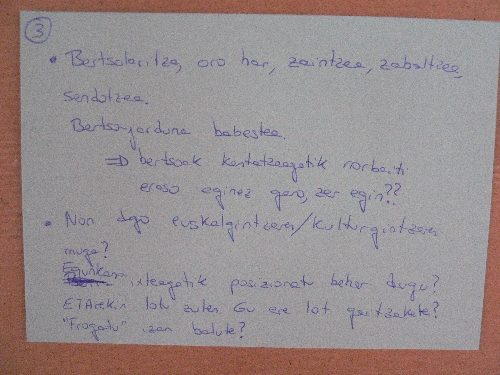 3
• Bertsolaritza, oro har, zaintzea, zabaltzea,
sendotzea.
Bertso-jarduna babestea.
⇒ bertsoak kantatzeagatik norbaiti
eraso eginez gero, zer egin??
• Non dago euskalgintzaren/kulturgintzaren
muga?
Egunkaria ixteagatik posizionatu behar dugu?
ETArekin lotu zuten. Gu ere lot gaitzakete?
"Frogatu" izan balute?